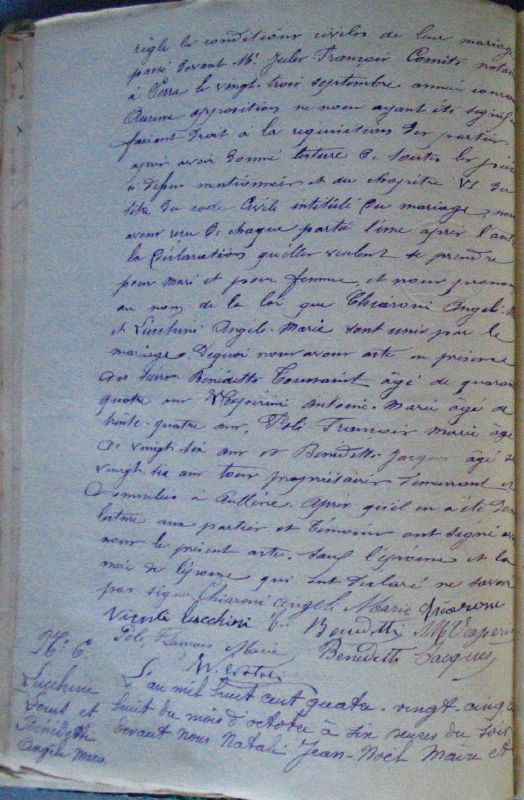 règle les conditions civiles de leur mariage
passé devant Mr Jules François Comiti notaire
à Serra le vingt-trois septembre année courante
Aucune opposition ne nous ayant été signifiée
faisant droit à la requisition des parties
après avoir donné lecture de toutes les pièces
ci dessus mentionnées et du chapitre VI du
titre du code Civile intitulé Du mariage, nous
avons reçu de chaque partie l'une après l'autre
la déclaration qu'elles veulent se prendre
pour mari et pour femme, et nous prononçons
au nom de la loi que Chiaroni Angel-M
et Lucchini Angèle-Marie sont unis par le
mariage. De quoi nous avons acte en présence
des sieurs Benedetti Toussaint âgé de quarante
quatre ans Antoine-Marie âgé de
trente-quatre ans, Poli François Marie âgé
de vingt-six ans et Benedetti-Jacques âgé de
vingt-six ans tous propriétaires demeurant et
domiciliés à Aullène. Après qu'il en a été donné
lecture aux parties et témoins ont signé avec
nous le présent acte. sauf l'épouse et la
mère de l'épouse qui ont déclaré ne savoir
pas signer Chiaroni Angeli Marie
Lucchini Benedetti
Poli François Marie Benedetti Jacques
No. 6
Lucchini
Louis et
Benedetti
Angèle Marie
L'an mil huit cent quatre-vingt-cinq
huit du mois d'octobre à six heures du soir
devant nous Natali Jean-Noël Maire et